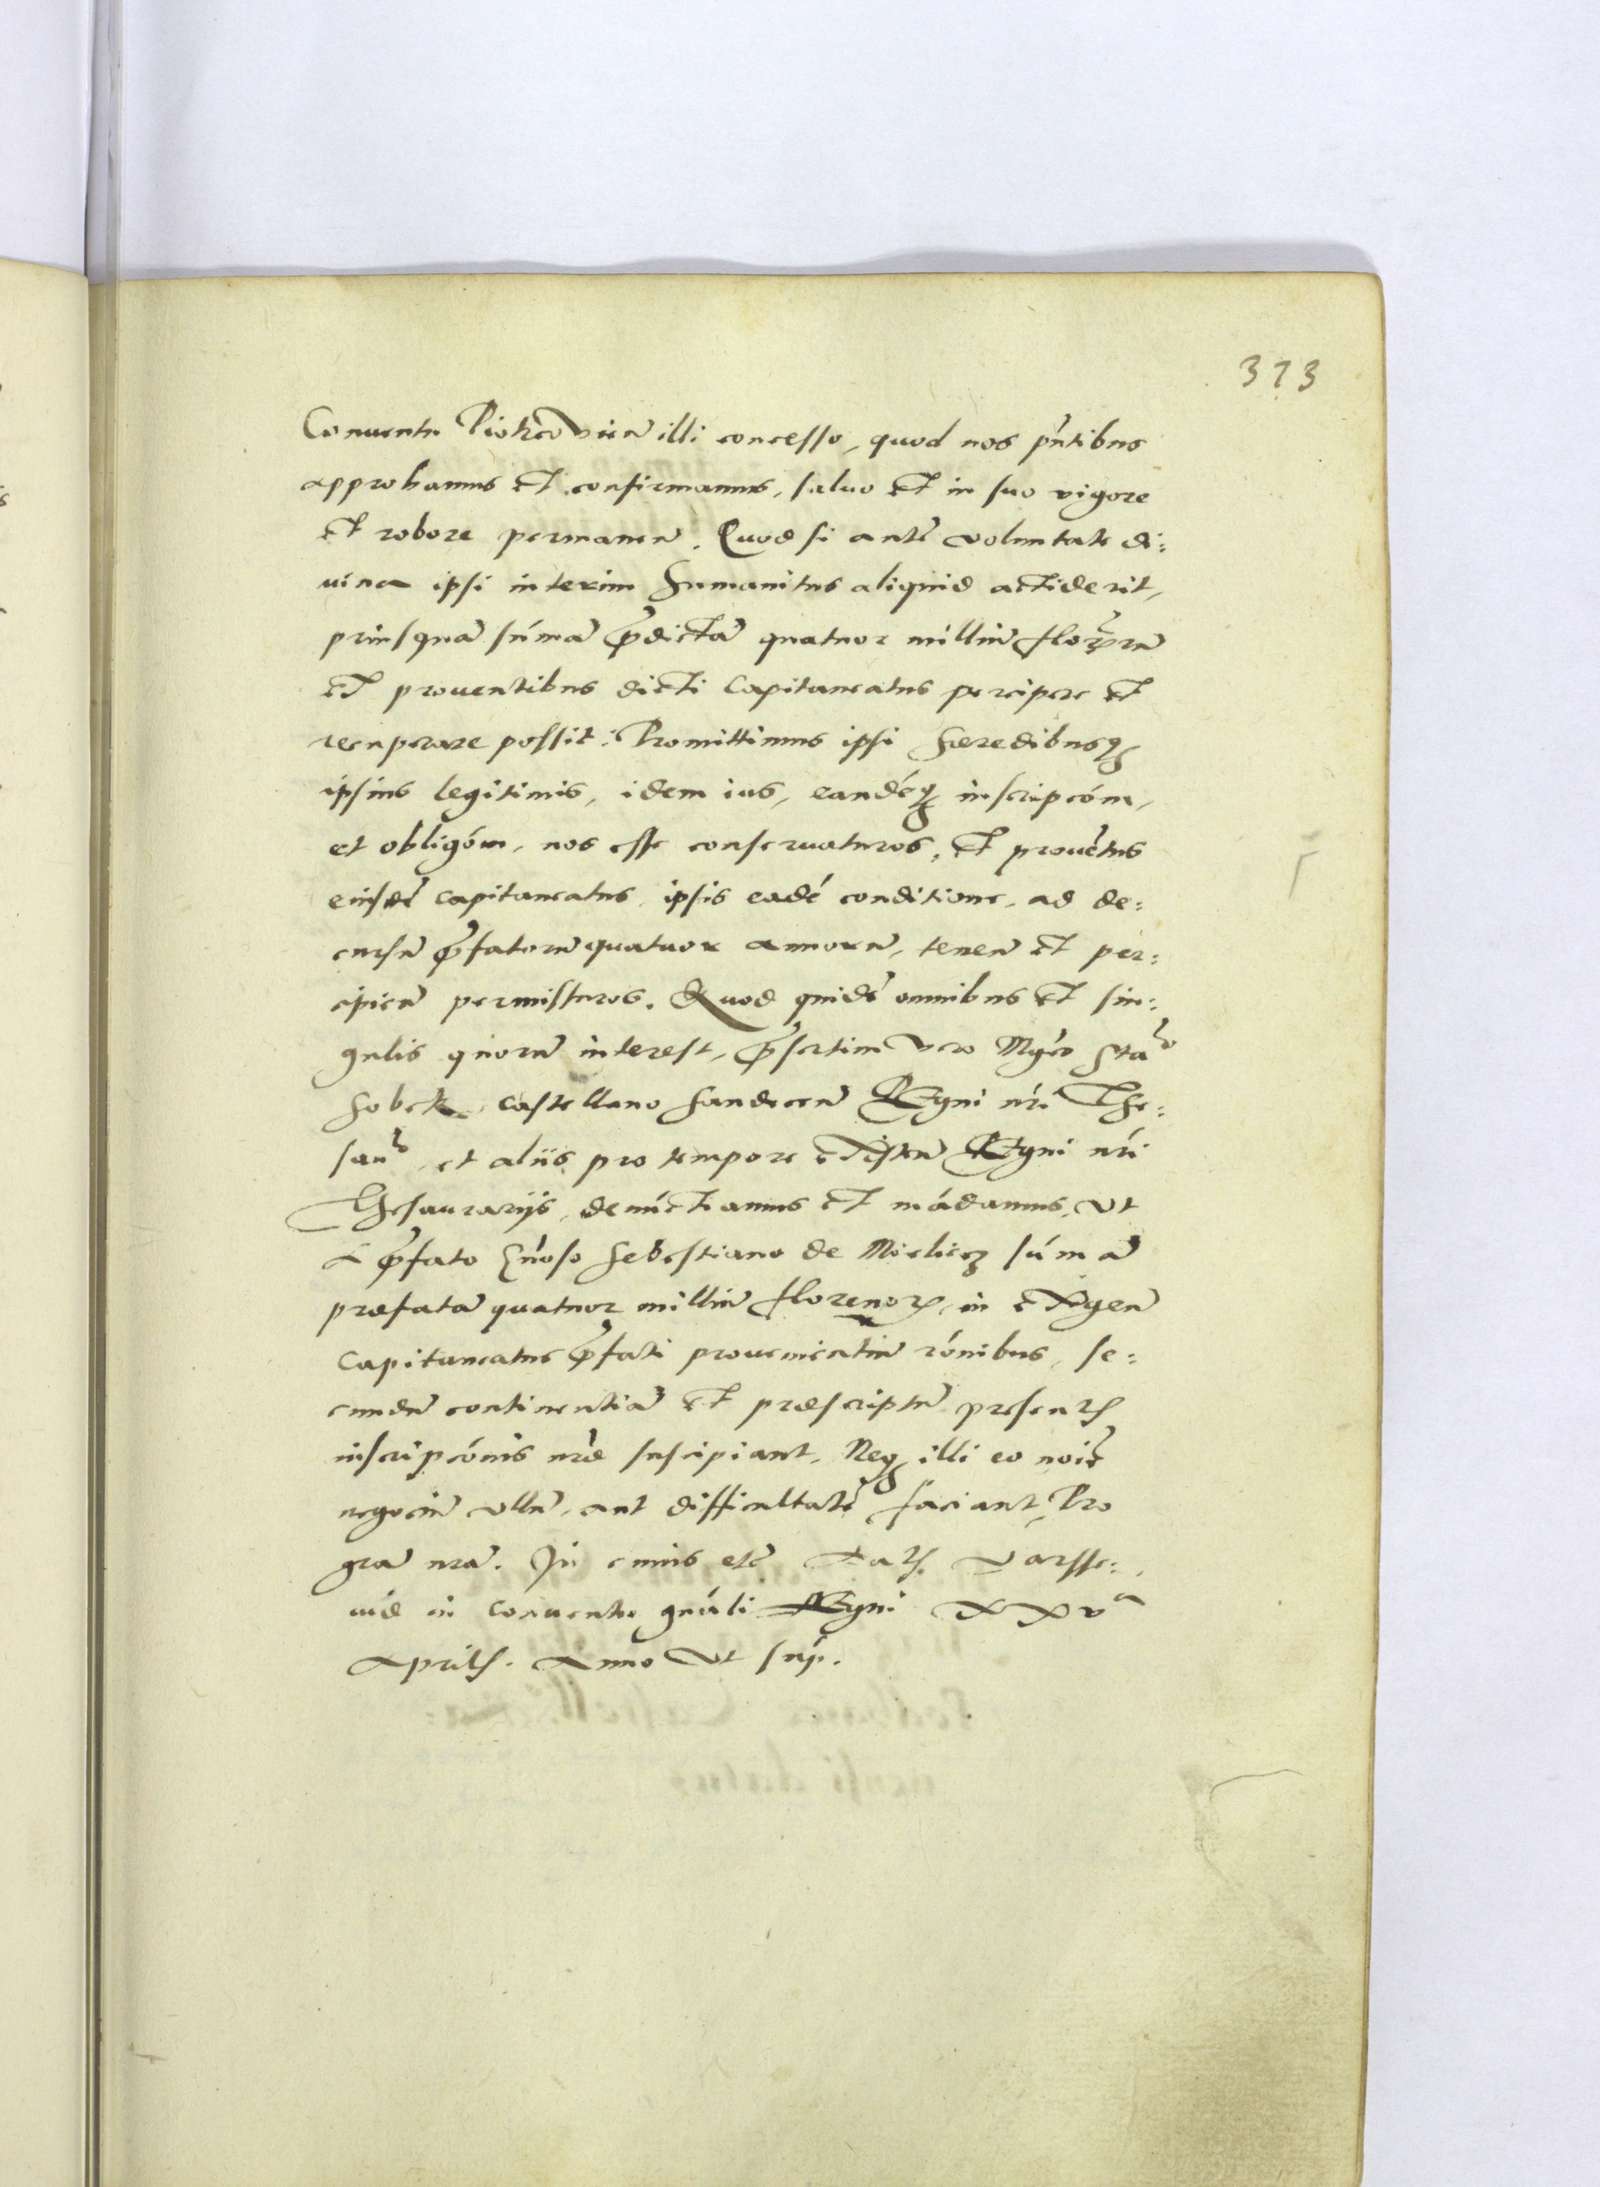 373
Conuentu Piotrcouien̄ illi concesso, quod nos pn̄tibus
approbamus et confirmamus, saluo et in suo vigore
et robore permanen̄. Quod si autē voluntate di:
uina ipsi interim humanitus aliquid acciderit,
priusquā sūmā p̄dictā quatuor milliū florenorū
ex prouentibus dicti Capitaneatus percipere et
recuperare possit: Promittimus ipsi haeredibusq̄
ipsius legitimis, idem ius, eandēq̄ inscripcōm,
et obligōm, nos esse conseruaturos, et prouētus
eiusdē capitaneatus ipsis eadē conditione, ad de:
cursū p̄fatorū quatuor annorū, tenen̄ et per:
cipien̄ permissuros. Quod quidē omnibus et sin:
gulis quorū interest, p̄sertim vero Mgc̄o Sta^o
Sobek, castellano Sandecen̄ Regni nr̄i The:
sau^o, et aliis pro tempore existen̄ Regni nr̄i
Thesaurarijs, denūctiamus et mādamus, vt
a p̄fato Gn̄oso Sebestiano de Mielicz sūmā
praefatā quatuor milliū florenorꝝ, in exigen̄
Capitaneatus p̄fati prouenientiū rōnibus, se:
cundū continentiā et praescriptū presentꝭ
inscripcōnis nrē suscipiant, Neqꝫ illi eo noīe
negociū vllū, aut difficultatē faciant, Pro
grā nrā. In cuius etc̄ Datꝭ Varsse:
uiē in Conuentu gnāli Regni XXv^a
Aprilꝭ. Anno vt sup̄.